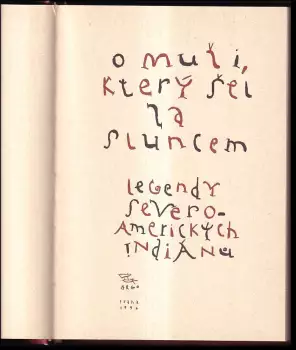 o muži,
který šel
za
sluncem
legendy
severo-
amerických
indiánů
ARGO